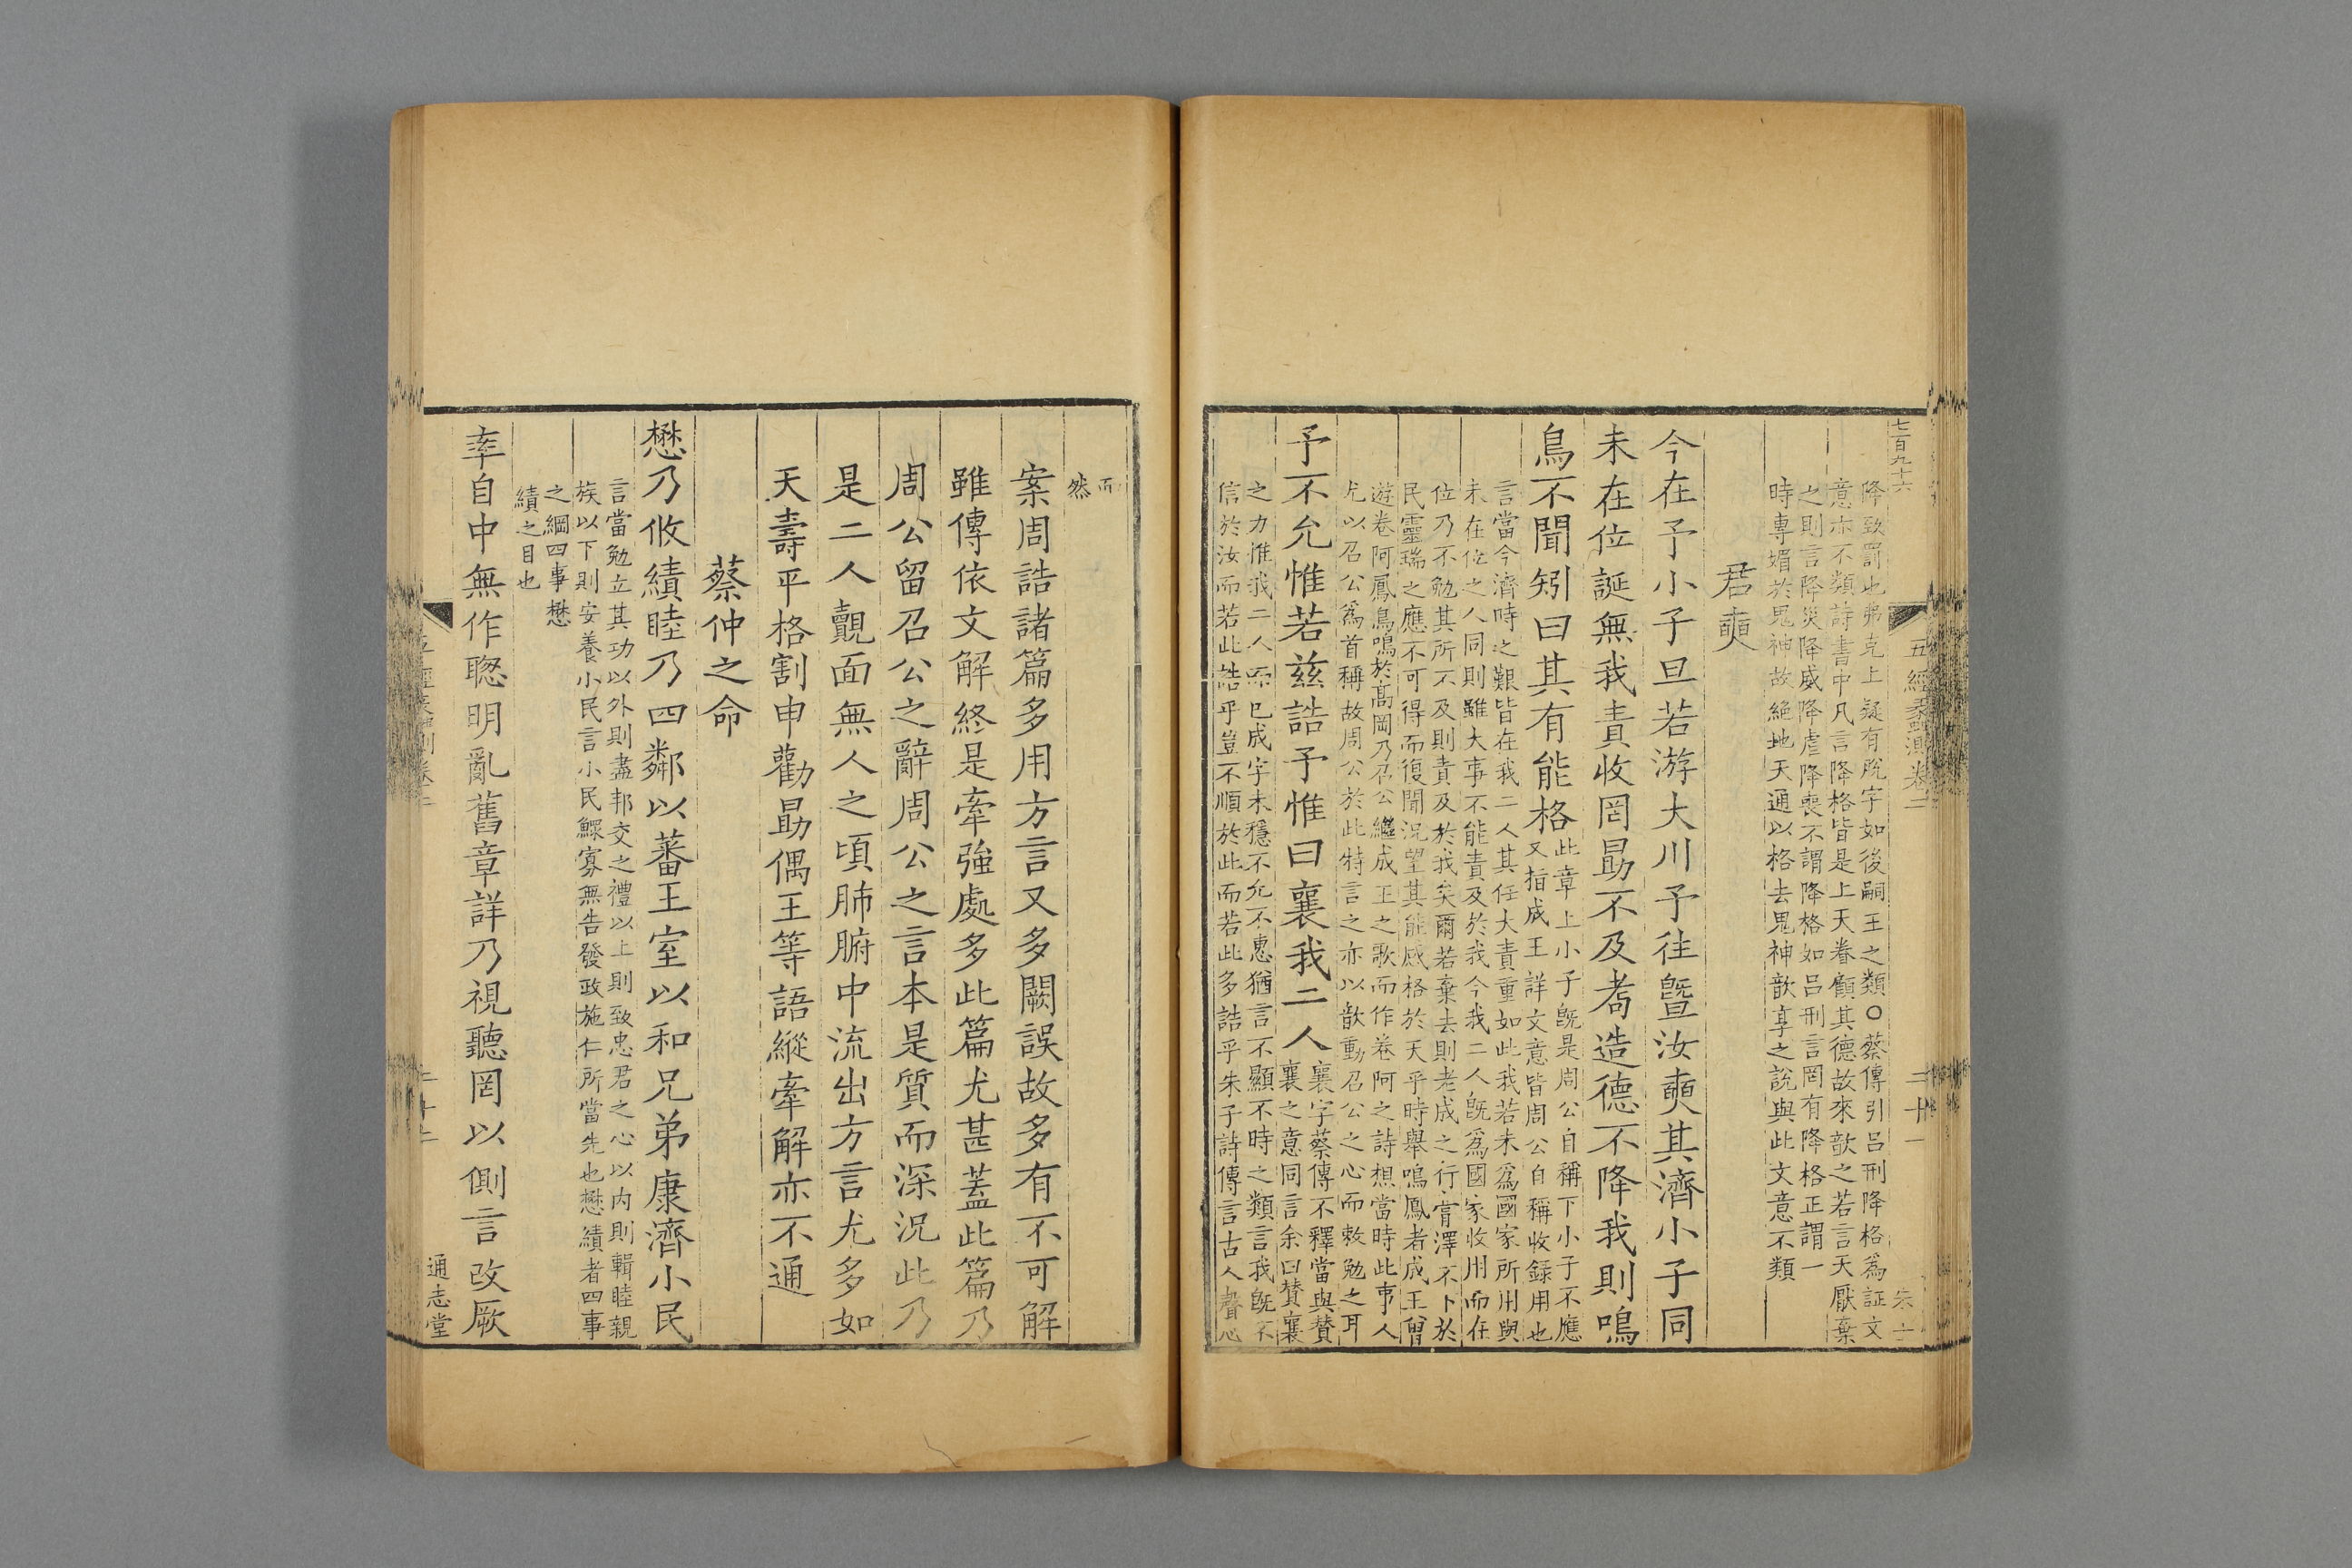 七百九十六
降致罰也弗克上疑有脫字如後嗣王之類○蔡傳引呂刑降格為証文
意亦不類詩書中凡言降格皆是上天眷顧其德故來歆之若言天厭棄
之則言降災降威降虐降喪不謂降格如呂刑言罔有降格正謂一
時專媚於鬼神故絶地天通以格去鬼神歆享之說與此文意不類
君奭
今在予小子旦若游大川予往曁汝奭其濟小子同
未在位誕無我責收罔勗不及耇造德不降我則鳴
鳥不聞矧曰其有能格
此章上小子旣是周公自稱下小子不應
又指成王詳文意皆周公自稱收録用也
言當今濟時之艱皆在我二人其任大責重如此我若未爲國家所用與
未在位之人同則雖大事不能責及於我今我二人旣爲國家收用而在
位乃不勉其所不及則責及於我矣爾若棄去則老成之行膏澤不下於
民靈瑞之應不可得而復聞況望其能感格於天乎時舉鳴鳳者成王嘗
遊卷阿鳳鳥鳴於高岡乃召公繼成王之歌而作卷阿之詩想當時此事人
尤以召公爲首稱故周公於此特言之亦以歆動召公之心而敕勉之耳
予不允惟若茲誥予惟曰襄我二人
襄字蔡傳不釋當與贊
襄之意同言余曰贊襄
之力惟我二人而已成字未穩不允不惠猶言不顯不時之類言我旣不
信於汝而若此誥乎豈不順於此而若此多誥乎朱子詩傳言古人聲急
五經蠡測卷二
二十一
而
然
案周誥諸篇多用方言又多闕誤故多有不可解
雖傳依文解終是牽強處多此篇尤甚葢此篇乃
周公留召公之辭周公之言本是質而深況此乃
是二人覿面無人之頃肺腑中流出方言尤多如
天壽平格割申勸勗偶王等語縱牽解亦不通
蔡仲之命
懋乃攸績睦乃四鄰以蕃王室以和兄弟康濟小民
言當勉立其功以外則盡邦交之禮以上則致忠君之心以内則輯睦親
族以下則安養小民言小民鰥寡無告發政施仁所當先也懋績者四事
之綱四事懋
績之目也
率自中無作聦明亂舊章詳乃視聽罔以側言改厥
通志堂